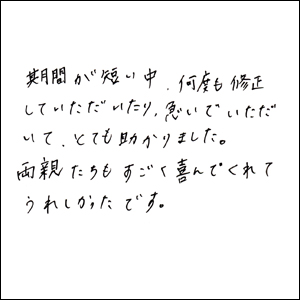 期間が短い中、何度も修正
していただいたり、急いでいただ
いて、とても助かりました。
両親たちもすごく喜んでくれて
うれしかったです。